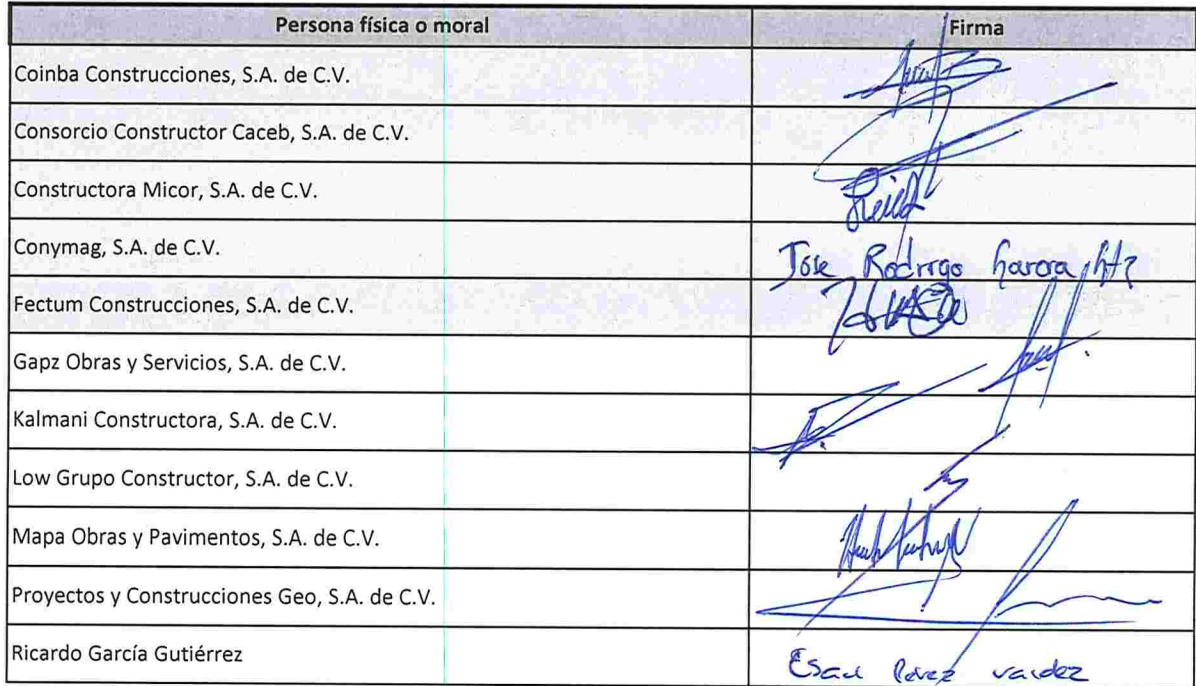 Persona física o moral Firma
Coinba Construcciones, S.A. de C.V.
Consorcio Constructor Caceb, S.A. de C.V.
Constructora Micor, S.A. de C.V.
Conymag, S.A. de C.V. Jose Rodrigo
Fectum Construcciones, S.A. de C.V.
Gapz Obras y Servicios, S.A. de C.V.
Kalmani Constructora, S.A. de C.V.
Low Grupo Constructor, S.A. de C.V.
Mapa Obras y Pavimentos, S.A. de C.V.
Proyectos y Construcciones Geo, S.A. de C.V.
Ricardo García Gutiérrez Esau Perez